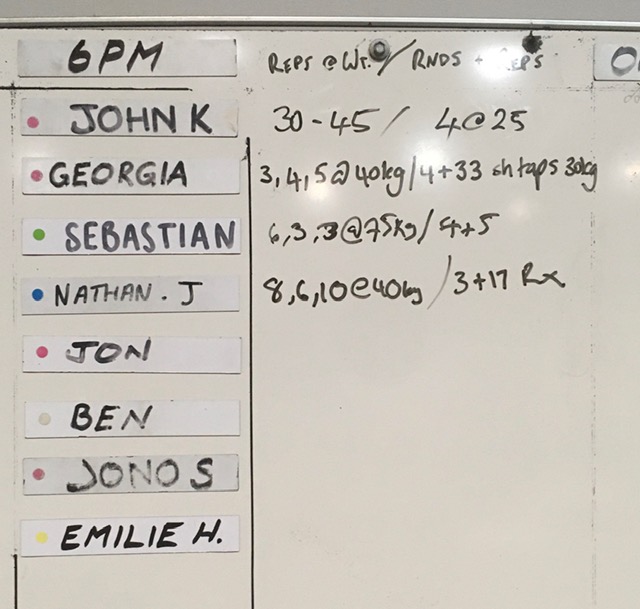 6PM REPS @ WT. / RNDS + REPS
JOHN K 30-45 / 4@25
GEORGIA 3,4,5@40kg/4+33 sh taps 30kg
SEBASTIAN 6,3,3@75kg/4+5
NATHAN. J 8,6,10@40kg / 3+17 Rx
JON
BEN
JONO S
EMILIE H.